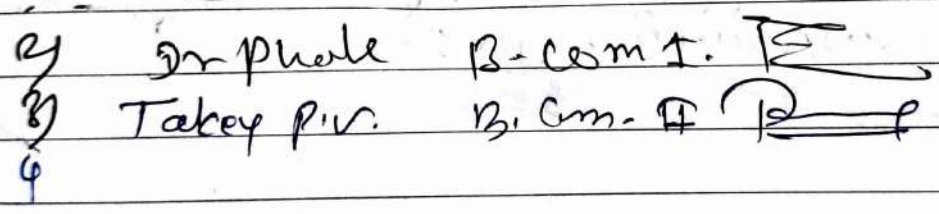 2) Dr Phole B.com I.
3) Takey P.V. B.Com. II
4